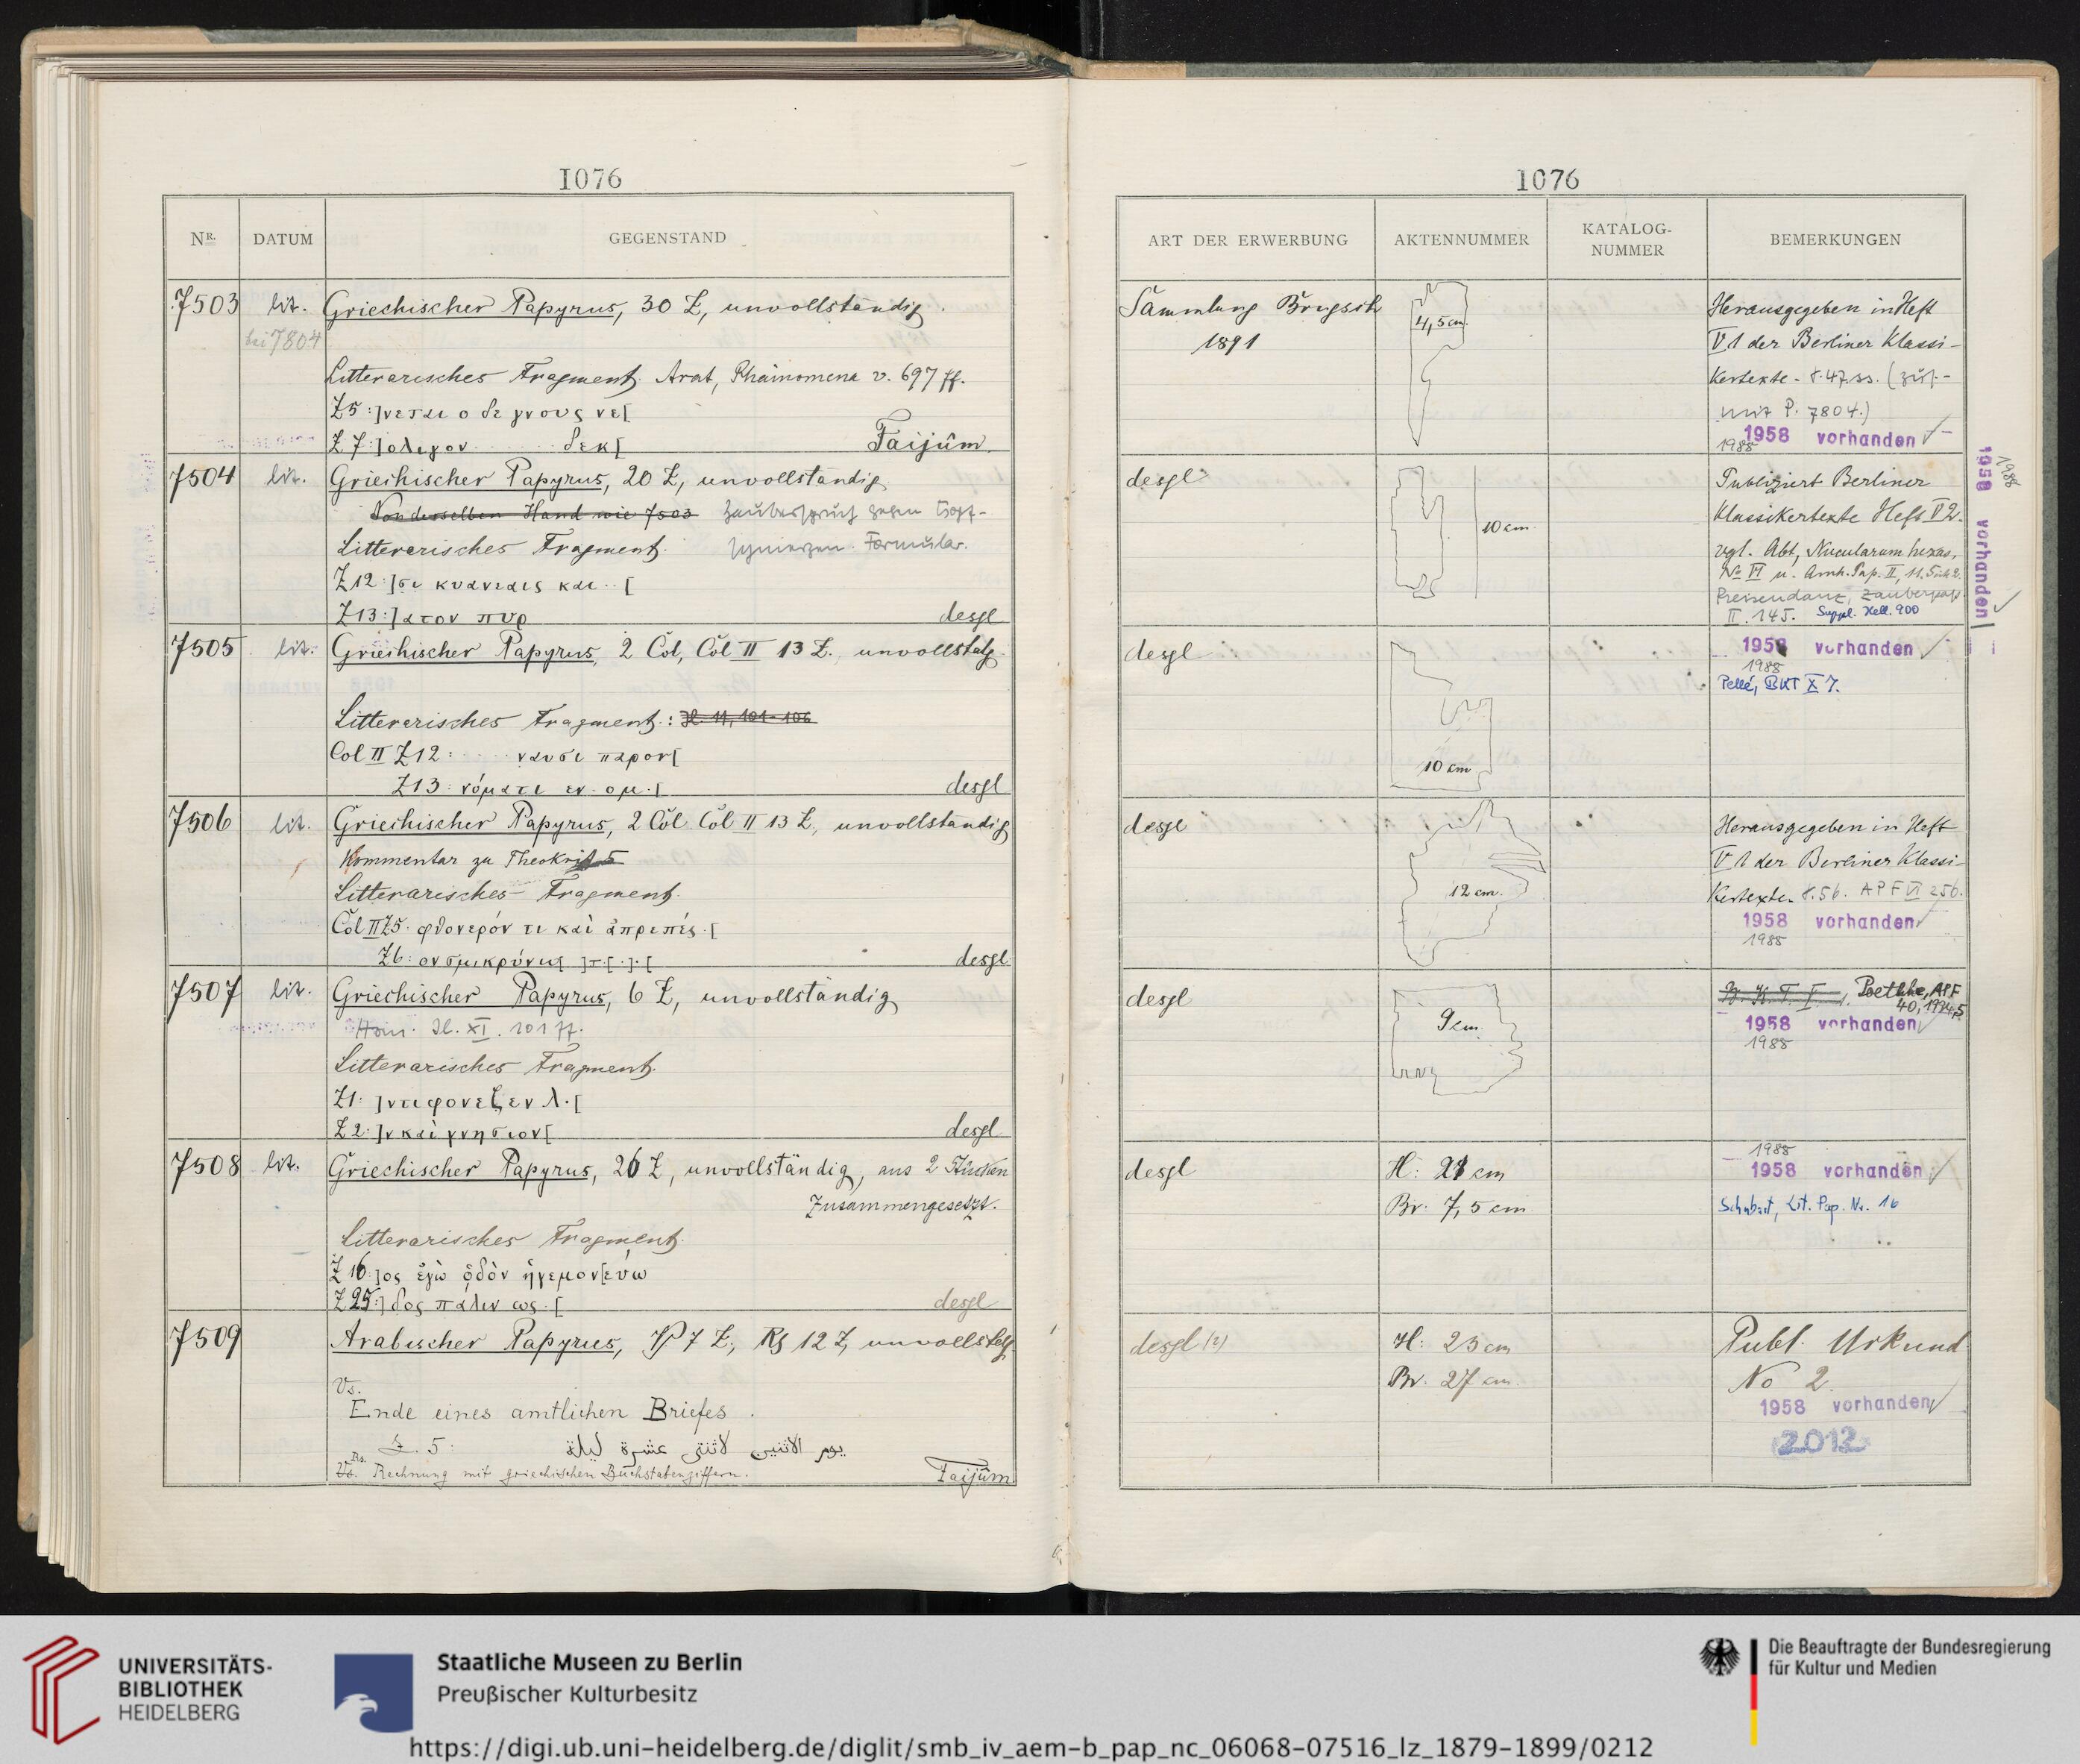 1076
1076
Nr.
DATUM
GEGENSTAND
ART DER ERWERBUNG
AKTENNUMMER
KATALOG-
NUMMER
BEMERKUNGEN
7503
lit.
bei 7804
Griechischer Papyrus, 30 Z, unvollständig.
Litterarisches Fragment. Arat, Phainomena v. 697 ff.
Z 5:]νεται ο δε γνους νε[
Z 7:]ολιγον δεκ[ Faijûm.
Sammlung Brugsch
1891
4,5 cm
Herausgegeben in Heft
V 1 der Berliner Klassi-
kertexte. S. 47 ss. (zus.
mit P. 7804.)
1958 vorhanden
1988
7504
lit.
Griechischer Papyrus, 20 Z, unvollständig
Von derselben Hand wie 7503 Zauberspruch gegen Kopf-
Litterarisches Fragment. schmerzen. Formular.
Z 12:]σι κυανεαις και [
Z 13:]ατον πυρ desgl
desgl
10 cm
Publiziert Berliner
Klassikertexte Heft V 2.
vgl. Abt, Nucularum hexas,
No VI u. Amh. Pap. II, 11.
Preisendanz, Zauberpap
II. 145. Suppl. Hell. 900
1958 vorhanden
1988
7505
lit.
Griechischer Papyrus, 2 Col, Col II 13 Z., unvollstdg
Litterarisches Fragment.: Il. 11, 101-106
Col II Z 12: ναυσι παρον[
Z 13: νόματι εν. ομ.[ desgl
desgl
10 cm
1958 vorhanden
1988
Pellé, BKT X 7.
7506
lit.
Griechischer Papyrus, 2 Col Col II 13 Z, unvollständig
Kommentar zu Theokrit 5
Litterarisches Fragment.
Col II Z 5. φθονερόν τι καὶ ἀπρεπές.[
Z 6: desgl.
desgl
12 cm.
Herausgegeben in Heft
V 1 der Berliner Klassi-
kertexte. S. 56. APF VI 256.
1958 vorhanden
1988
7507
lit.
Griechischer Papyrus, 6 Z, unvollständig
Hom. Il. XI. 101 ff.
Litterarisches Fragment.
Z 1: ]ντιφονεζεν λ.[
Z 2: ]ν καὶ γνησιον[ desgl
desgl
9 cm.
Poethke, APF
40, 1994,
1958 vorhanden
1988
7508
lit.
Griechischer Papyrus, 26 Z, unvollständig, aus 2 Stücken
Zusammengesetzt.
Litterarisches Fragment
Z 16:]ος ἐγὼ ὁδὸν ἡγεμον[εύω
Z 25:]δος πάλιν ως.[ desgl
desgl
H: 21 cm
Br: 7,5 cm
1988
1958 vorhanden
Schubart, Lit. Pap. Nr. 16
7509
Arabischer Papyrus, Vs 7 Z., Rs 12 Z, unvollstdg
Vs.
Ende eines amtlichen Briefes.
Z. 5: يوم الاثنين لاثنتى عشرة ليلة
Rs.
Vs. Rechnung mit griechischen Buchstabenziffern. Faijûm
desgl (?)
H: 23 cm
Br. 27 cm.
Publ. Urkund
No 2.
1958 vorhanden
2012
UNIVERSITÄTS-
BIBLIOTHEK
HEIDELBERG
Staatliche Museen zu Berlin
Preußischer Kulturbesitz
Die Beauftragte der Bundesregierung
für Kultur und Medien
https://digi.ub.uni-heidelberg.de/diglit/smb_iv_aem-b_pap_nc_06068-07516_lz_1879-1899/0212